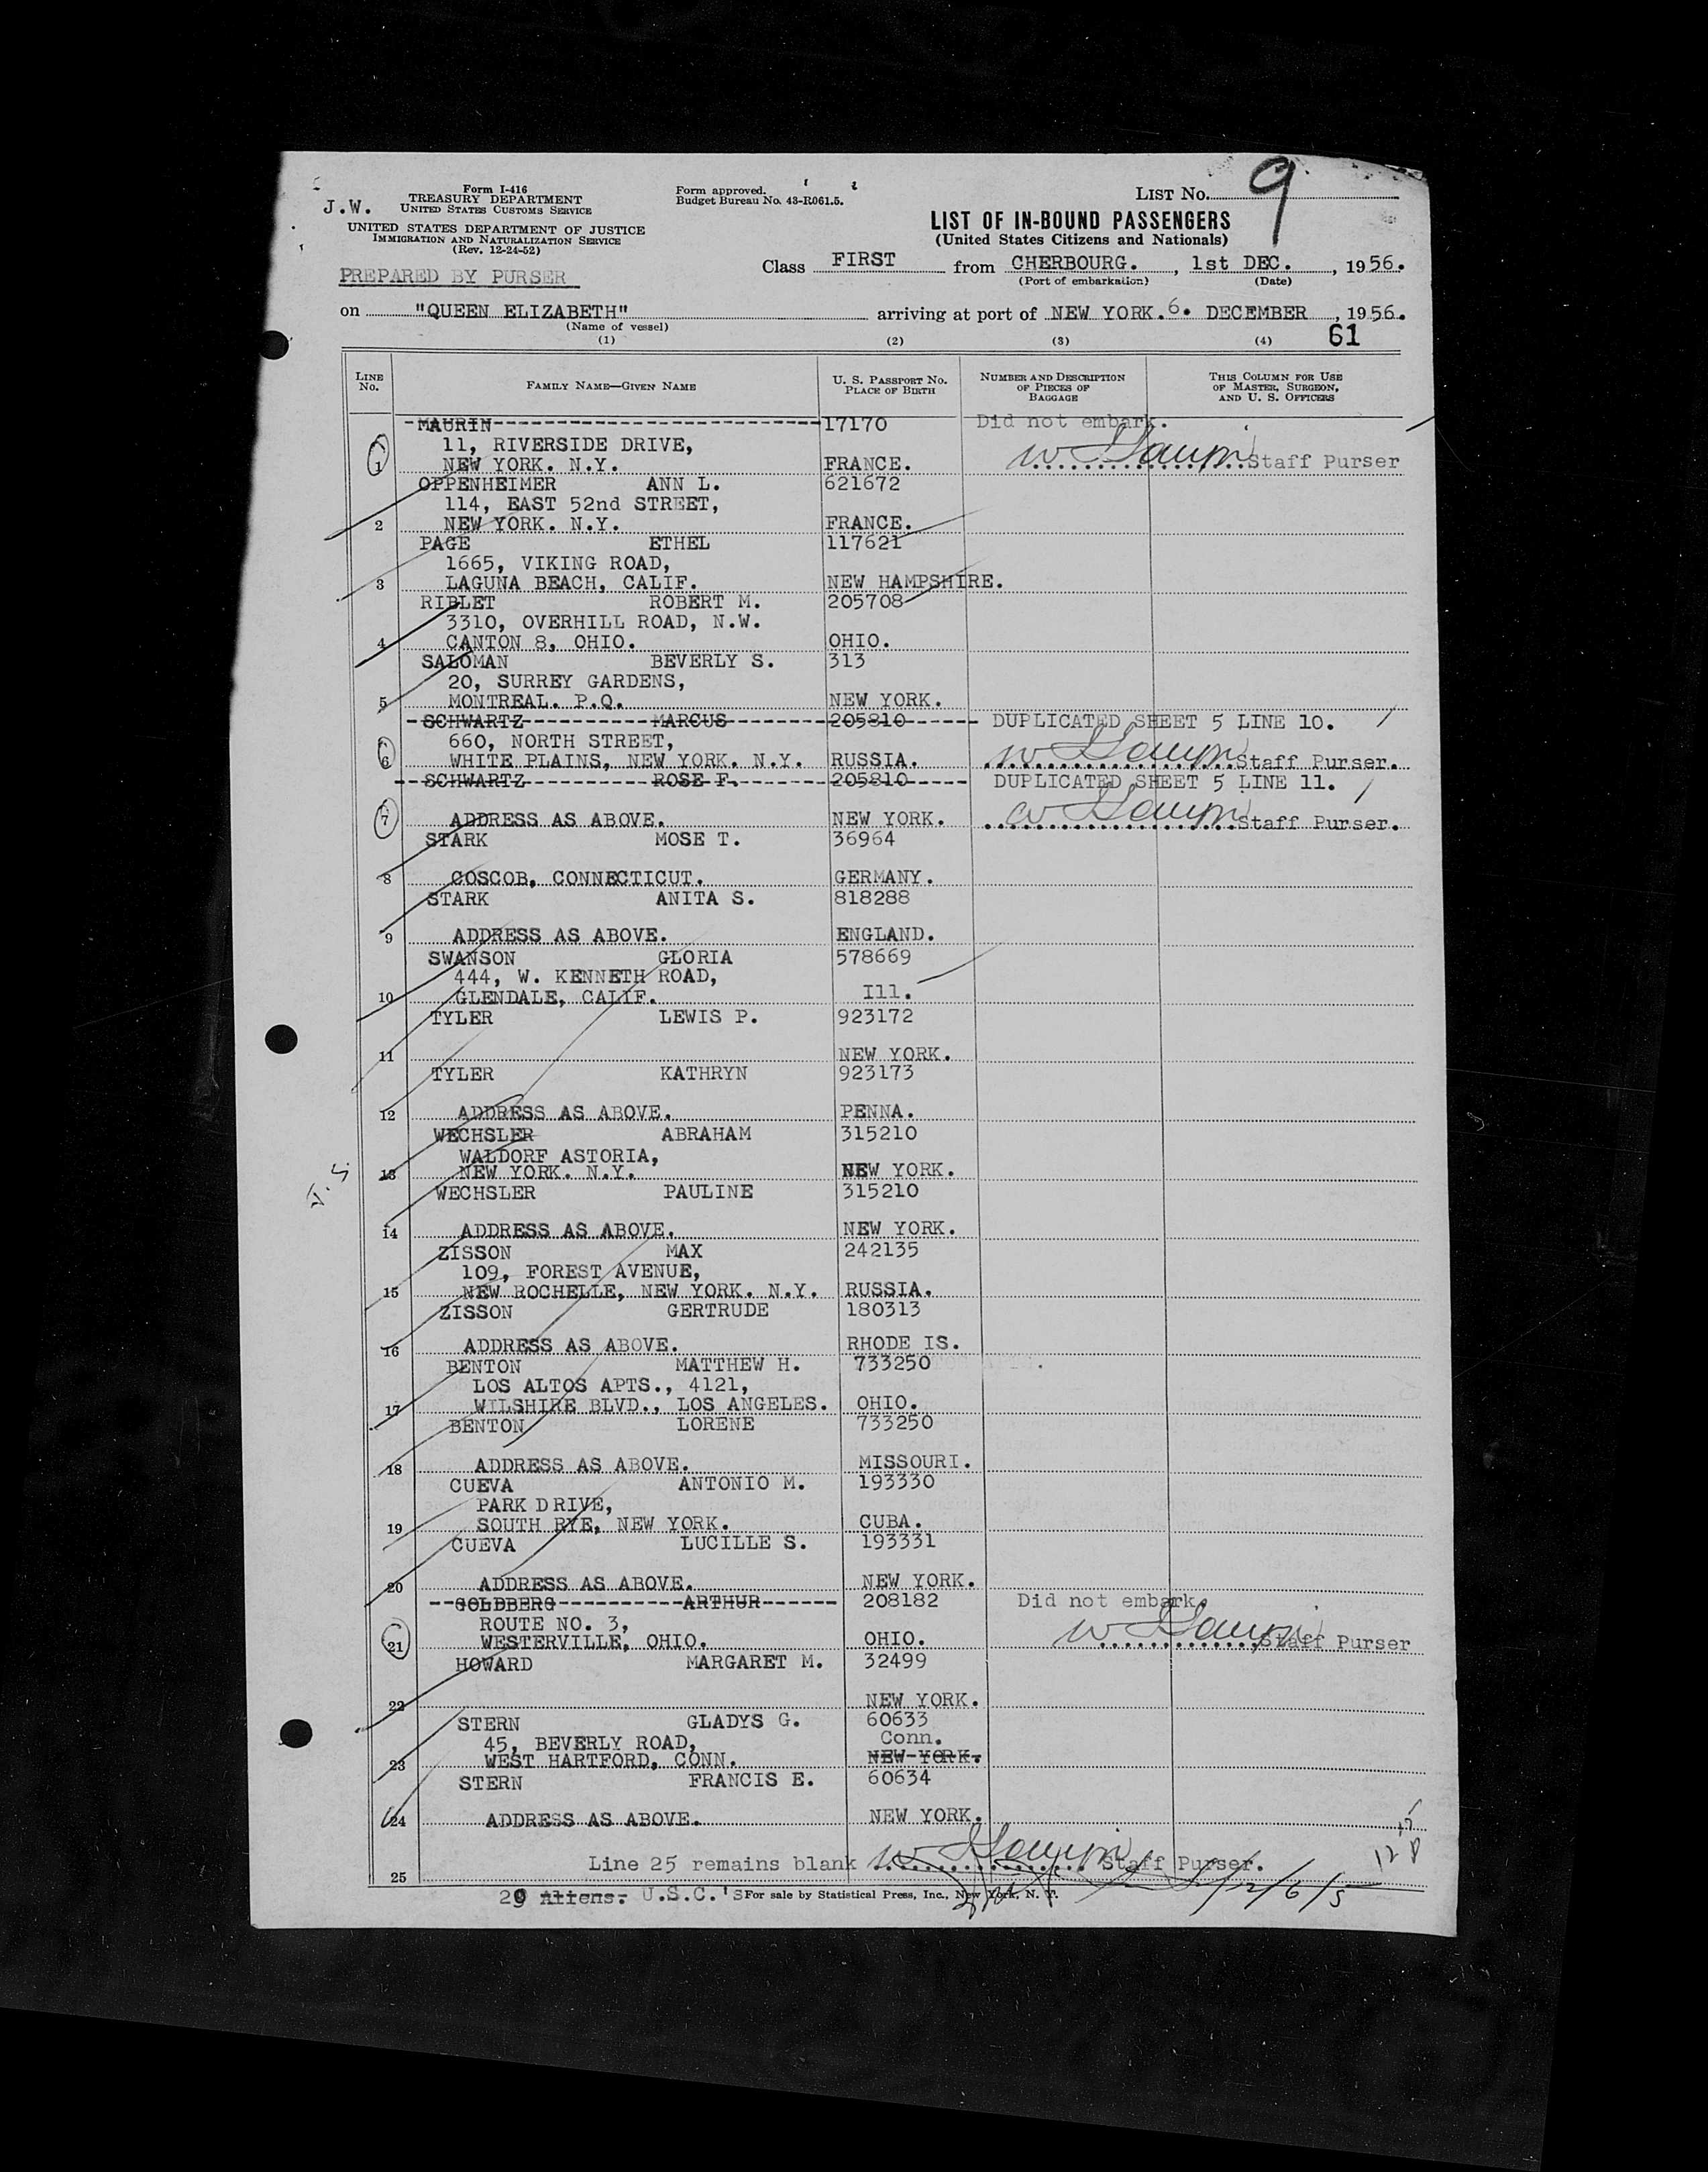 LIST NO. 9
J.W.
Form I-416
TREASURY DEPARTMENT
UNITED STATES CUSTOMS SERVICE
Form approved.
Budget Bureau No. 43-R061.5.
UNITED STATES DEPARTMENT OF JUSTICE
IMMIGRATION AND NATURALIZATION SERVICE
(Rev. 12-24-52)
LIST OF IN-BOUND PASSENGERS
(United States Citizens and Nationals)
PREPARED BY PURSER
Class FIRST from CHERBOURG. , 1st DEC. , 1956.
(Port of embarkation) (Date)
on "QUEEN ELIZABETH" arriving at port of NEW YORK. 6. DECEMBER , 1956.
(Name of vessel)
61
(1) (2) (3) (4)
LINE No. FAMILY NAME—GIVEN NAME U. S. PASSPORT No. PLACE OF BIRTH NUMBER AND DESCRIPTION OF PIECES OF BAGGAGE THIS COLUMN FOR USE OF MASTER, SURGEON, AND U. S. OFFICERS
MAURIN 17170 Did not embark.
11, RIVERSIDE DRIVE,
1 NEW YORK. N.Y. FRANCE. Staff Purser
OPPENHEIMER ANN L. 621672
114, EAST 52nd STREET,
2 NEW YORK. N.Y. FRANCE.
PAGE ETHEL 117621
1665, VIKING ROAD,
3 LAGUNA BEACH, CALIF. NEW HAMPSHIRE.
RIBLET ROBERT M. 205708
3310, OVERHILL ROAD, N.W.
4 CANTON 8, OHIO. OHIO.
SALOMAN BEVERLY S. 313
20, SURREY GARDENS,
5 MONTREAL. P.Q. NEW YORK.
SCHWARTZ MARCUS 205810 DUPLICATED SHEET 5 LINE 10.
660, NORTH STREET,
6 WHITE PLAINS, NEW YORK. N.Y. RUSSIA. Staff Purser.
SCHWARTZ ROSE F. 205810 DUPLICATED SHEET 5 LINE 11.
7 ADDRESS AS ABOVE. NEW YORK. Staff Purser.
STARK MOSE T. 36964
8 COSCOB, CONNECTICUT. GERMANY.
STARK ANITA S. 818288
9 ADDRESS AS ABOVE. ENGLAND.
SWANSON GLORIA 578669
444, W. KENNETH ROAD,
10 GLENDALE, CALIF. Ill.
TYLER LEWIS P. 923172
11 NEW YORK.
TYLER KATHRYN 923173
12 ADDRESS AS ABOVE. PENNA.
WECHSLER ABRAHAM 315210
WALDORF ASTORIA,
13 NEW YORK. N.Y. NEW YORK.
WECHSLER PAULINE 315210
14 ADDRESS AS ABOVE. NEW YORK.
ZISSON MAX 242135
109, FOREST AVENUE,
15 NEW ROCHELLE, NEW YORK. N.Y. RUSSIA.
ZISSON GERTRUDE 180313
16 ADDRESS AS ABOVE. RHODE IS.
BENTON MATTHEW H. 733250
LOS ALTOS APTS., 4121,
17 WILSHIRE BLVD., LOS ANGELES. OHIO.
BENTON LORENE 733250
18 ADDRESS AS ABOVE. MISSOURI.
CUEVA ANTONIO M. 193330
PARK DRIVE,
19 SOUTH RYE, NEW YORK. CUBA.
CUEVA LUCILLE S. 193331
20 ADDRESS AS ABOVE. NEW YORK.
GOLDBERG ARTHUR 208182 Did not embark
ROUTE NO. 3,
21 WESTERVILLE, OHIO. OHIO. Staff Purser
HOWARD MARGARET M. 32499
22 NEW YORK.
STERN GLADYS G. 60633
45, BEVERLY ROAD, Conn.
23 WEST HARTFORD, CONN. NEW YORK.
STERN FRANCIS E. 60634
24 ADDRESS AS ABOVE. NEW YORK.
Line 25 remains blank Staff Purser.
25
29 Aliens. U.S.C.'s For sale by Statistical Press, Inc., New York, N. Y.